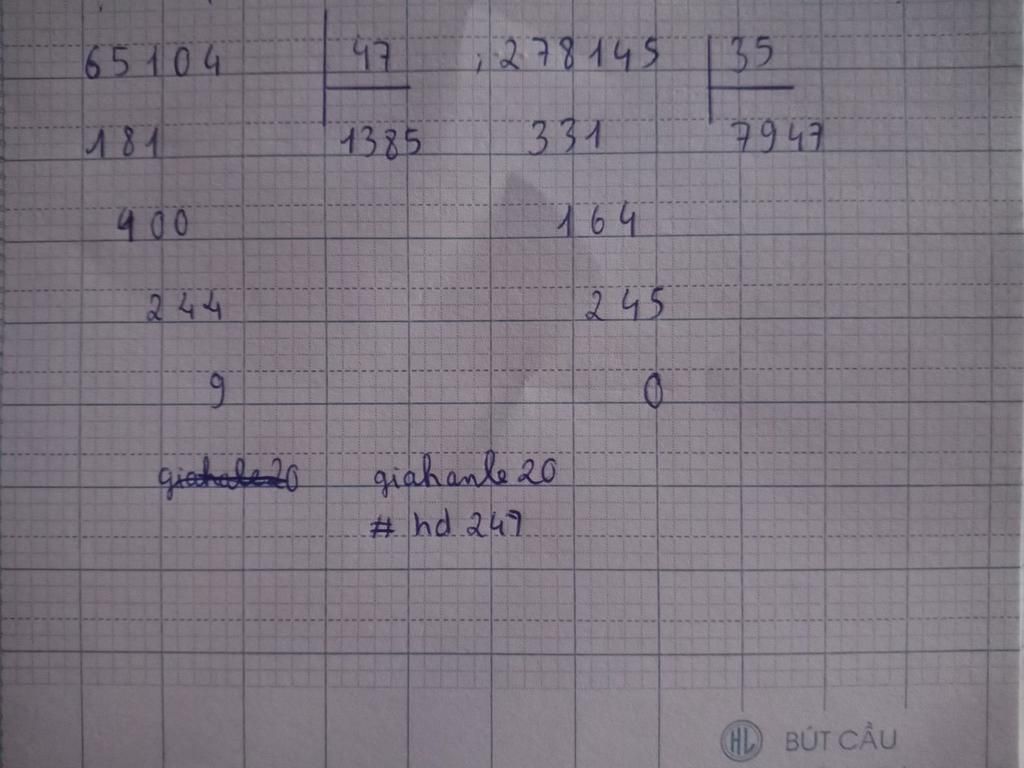 65104 47 ; 278145 35
181 1385 331 7947
400 164
244 245
9 0
giahale20 giahanle20
# hd 247
HL BÚT CẦU